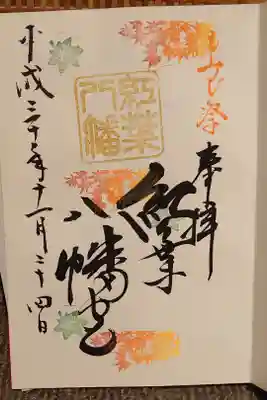 祭
奉拝
紅葉
八幡宮
紅葉
八幡
平成三十年十一月二十四日